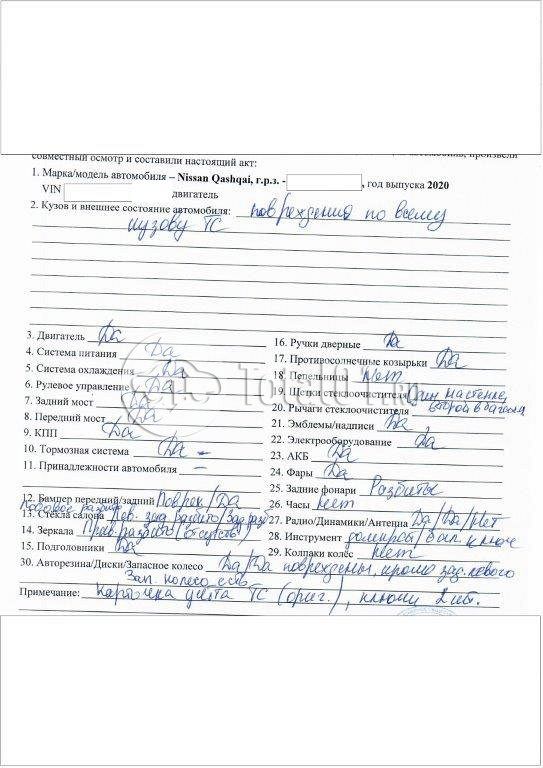 совместный осмотр и составили настоящий акт:
1. Марка/модель автомобиля – Nissan Qashqai, г.р.з. - , год выпуска 2020
VIN двигатель
2. Кузов и внешнее состояние автомобиля: повреждения по всему
кузову ТС
3. Двигатель Да
4. Система питания Да
5. Система охлаждения Да
6. Рулевое управление Да
7. Задний мост Да
8. Передний мост Да
9. КПП Да
10. Тормозная система Да –
11. Принадлежности автомобиля –
12. Бампер передний/задний Поврежд/Да
Лобовое разбито
13. Стекла салона Лев. зад разбито/Зад разб
14. Зеркала Прав разбито (отсутств)
15. Подголовники Да
16. Ручки дверные Да
17. Противосолнечные козырьки Да
18. Пепельницы Нет
19. Щетки стеклоочистителя Один на стекле,
20. Рычаги стеклоочистителя второй в багажн
21. Эмблемы/надписи Да
22. Электрооборудование Да
23. АКБ Да
24. Фары Да
25. Задние фонари Разбиты
26. Часы Нет
27. Радио/Динамики/Антенна Да/Да/Нет
28. Инструмент домкрат/бал. ключ
29. Колпаки колес Нет
30. Авторезина/Диски/Запасное колесо Да/Да повреждены, кроме зад. левого
Зап. колесо есть
Примечание: Карточка учета ТС (ориг.), ключи 2 шт.